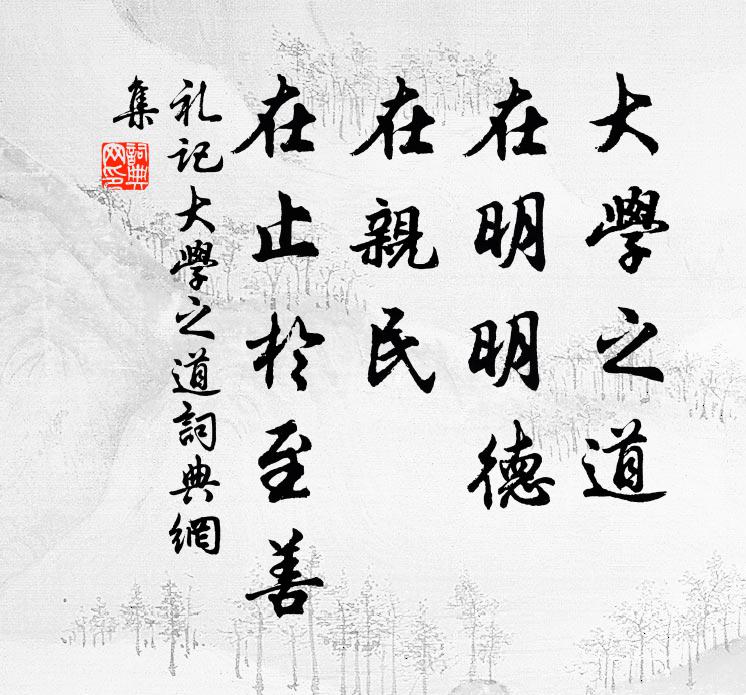 大學之道
在明明德
在親民
在止於至善
礼記大學之道詞典網
集
詞典
网印